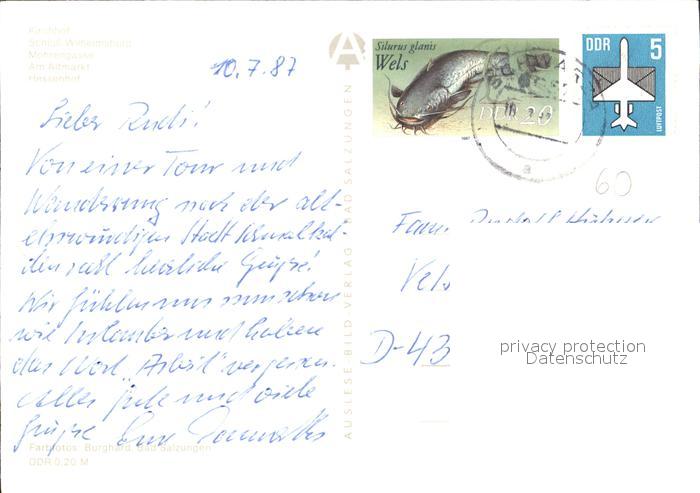 Kirchhof
Schloß Wilhelmsburg
Mohrengasse
Am Altmarkt
Hessenhof
10.7.87
Lieber Rudi!
Von einer Tour und
Wanderung nach der alt-
ehrwürdigen Stadt Schmalkal-
den herzliche Grüße!
Wir fühlen uns
wie Urlauber und haben
das Wort "Arbeit" vergessen.
Alles Gute und viele
Grüße Eure
Farbfotos: Burghard, Bad Salzungen
DDR 0,20 M
AUSLESE BILD VERLAG BAD SALZUNGEN
A
Silurus glanis
Wels
DDR 20
DDR 5
LUFTPOST
60
Fam.
D-43
privacy protection
Datenschutz